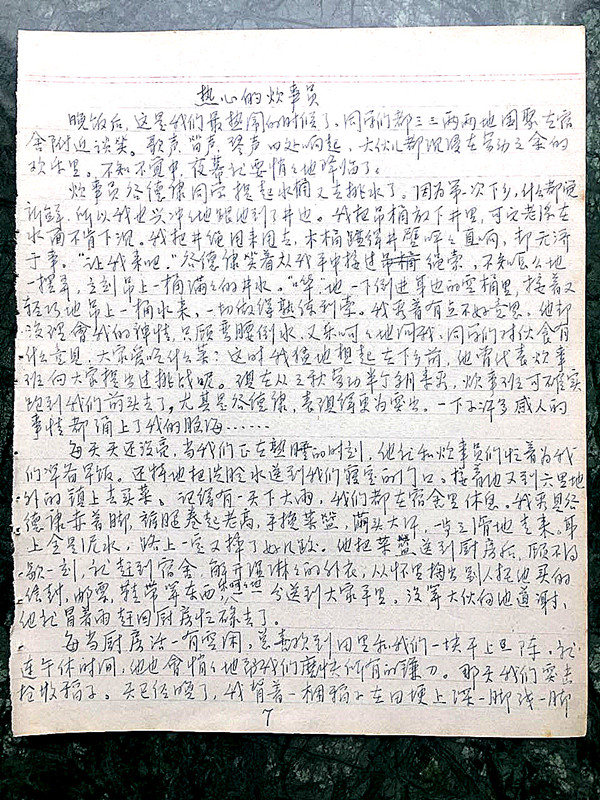 热心的炊事员
晚饭后，这是我们最热闹的时候了、同学们都三三两两地围聚在宿
舍附近谈笑。歌声、笛声、琴声四处响起，大伙儿都沉浸在劳动之余的
欢乐里。不知不觉中，夜幕已要悄悄地降临了。
炊事员谷德康同学提起水桶又去挑水了。因为第一次下乡，什么都觉
新鲜，所以我也兴冲冲地跟他到了井边。我把吊桶放下井里，可它老浮在
水面不肯下沉。我把井绳甩来甩去，木桶碰得井壁呯呯直响，却无济
于事。“让我来吧。”谷德康笑着从我手中接过绳索，不知怎么地
一摆弄，立刻吊上一桶满满的井水。“哗”地一下倒进身边的空桶里，接着又
轻巧地吊上一桶水来，一切做得熟练利索。我看着有点不好意思。他却
没理会我的神情，只顾弯腰倒水，又乐呵呵地问我：同学们对伙食有
什么意见，大家爱吃什么菜？这时我猛地想起在下乡前，他曾代表炊事
班向大家提出过挑战呢。现在从三秋劳动半个月来看，炊事班可确实
跑到我们前头去了，尤其是谷德康，表现得更为突出。一下子许多感人的
事情都涌上了我的脑海……
每天天还没亮，当我们正在熟睡的时刻，他已和炊事员们忙着为我
们准备早饭。还特地把洗脸水送到我们寝室的门口。接着他又到六里地
外的镇上去买菜。记得有一天下大雨，我们都在宿舍里休息。我看见谷
德康赤着脚，裤腿卷起老高，手挽菜篮，满头大汗，一步三滑地走来。身
上全是泥水，路上一定又摔了好几跤。他把菜篮送到厨房后，顾不得
歇一刻，就赶到宿舍，解开湿淋淋的外衣，从怀里掏出别人托他买的
信封，邮票，鞋带等东西一一分送到大家手里。没等大伙向他道谢，
他就冒着雨赶回厨房忙碌去了。
每当厨房活一有空闲，总喜欢到田里和我们一块干上一阵，就
连午休时间，他也会悄悄地把我们磨快所有的镰刀。那天我们要去
抢收稻子。天已经晚了，我背着一捆稻子在田埂上深一脚浅一脚
7